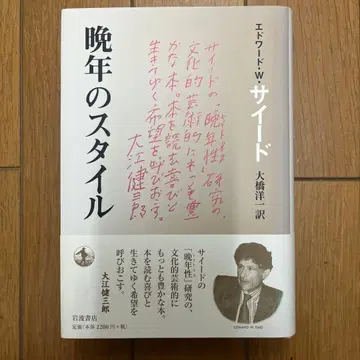 エドワード・W・サイード
大橋洋一訳
サイードの、「晩年性」研究の、
文化的芸術的にもっとも豊
かな本。本を読む喜びと
生きてゆく希望を呼びおこす。
大江健三郎
晩年のスタイル
サイードの
「晩年性」研究の、
文化的芸術的に
もっとも豊かな本。
本を読む喜びと
生きてゆく希望を
呼びおこす。
大江健三郎
EDWARD W. SAID
岩波書店
定価(本体 2200 円+税)